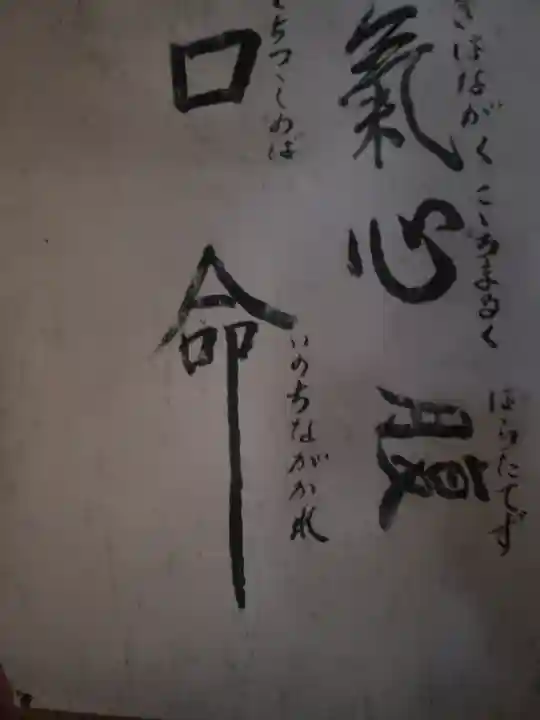 きはながく こゝろまるく
はらたてず
氣心腹
くちつゝしめば
いのちながかれ
口命